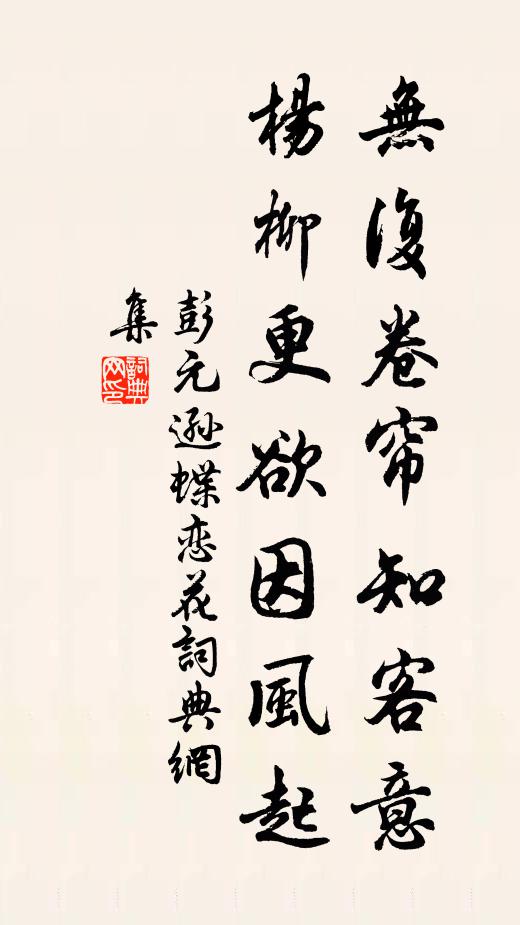 無復卷帘知客意
楊柳更欲因風起
彭元遜蝶恋花詞典網
集
詞典网印